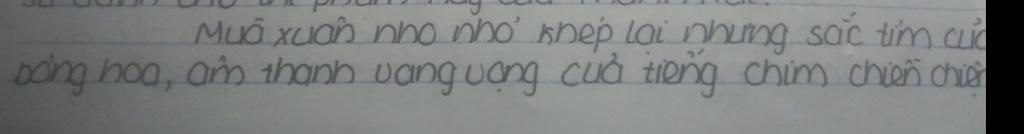 Mùa xuân nho nhỏ khép lại nhưng sắc tím củ
bông hoa, âm thanh vang vọng của tiếng chim chiền chiện